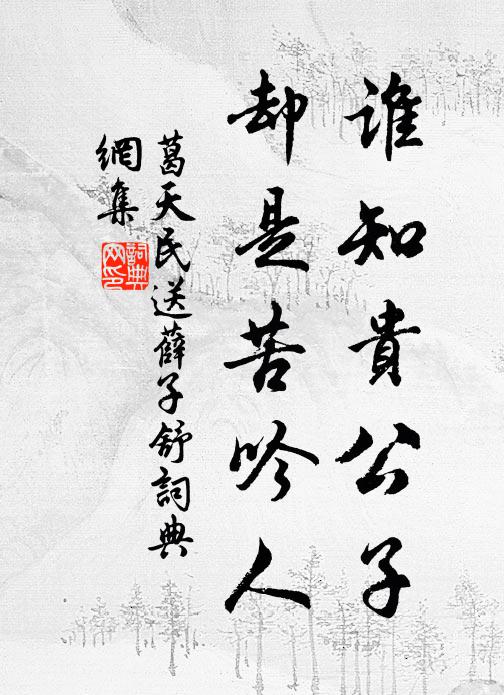 誰知貴公子
却是苦吟人
葛天民送薛子舒詞典
網集
詞典网印